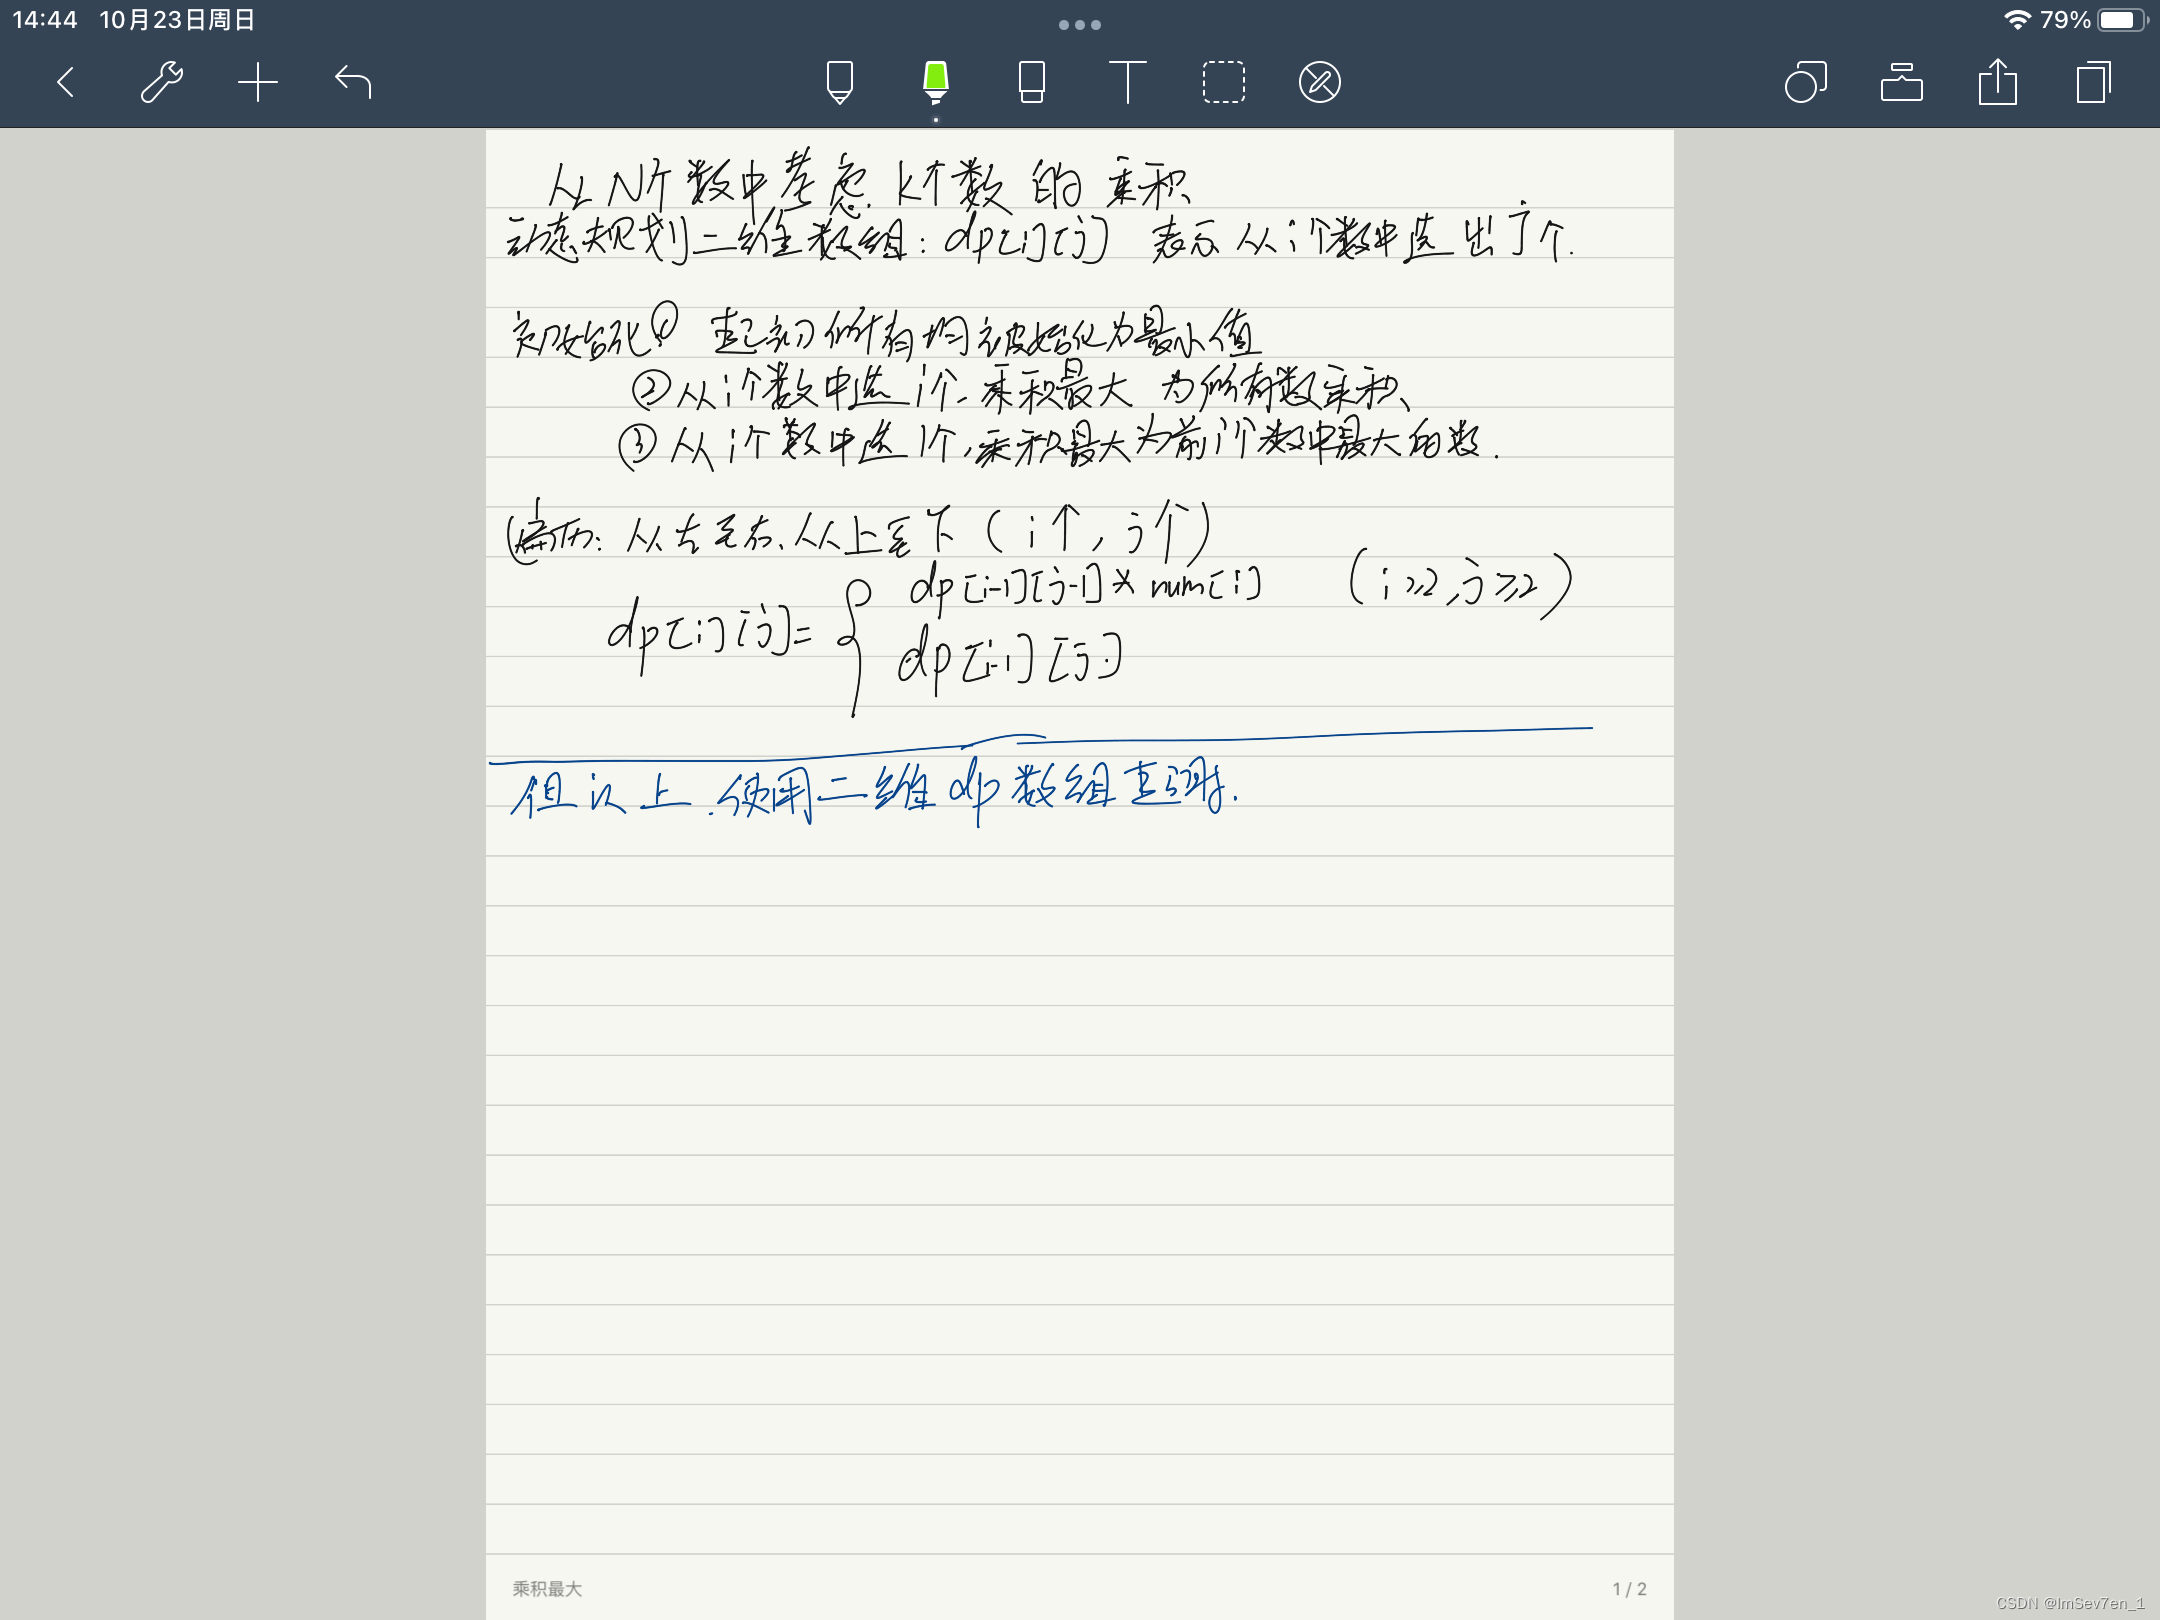 14:44 10月23日周日
79%
从N个数中考虑 k个数的乘积
动态规划二维数组: dp[i][j] 表示从i个数中选出了j个.
初始化① 起初所有均被始化为最小值
②从i个数中选i个,乘积最大为所有数乘积、
③从i个数中选1个,乘积最大为前i个数中最大的数.
遍历: 从左至右、从上至下 (i个, j个)
dp[i-1][j-1] * num[i] (i≥2, j≥2)
dp[i][j]= {
dp[i-1][j]
但以上.使用二维dp数组直
乘积最大
1 / 2
CSDN @ImSev7en_1